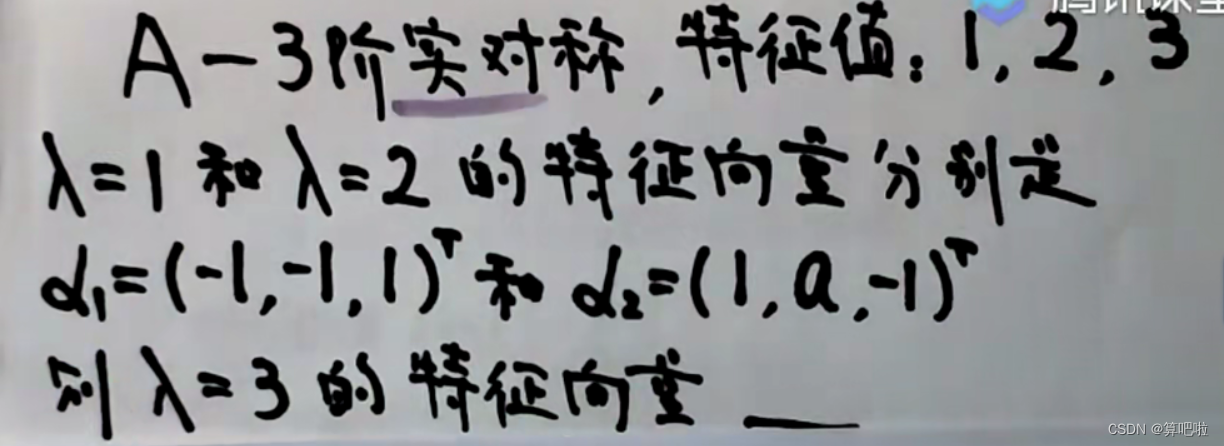 腾讯课堂
A-3阶实对称,特征值:1,2,3
λ=1和λ=2的特征向量分别是
α₁=(-1,-1,1)ᵀ和α₂=(1,a,-1)ᵀ
则λ=3的特征向量____
CSDN @算吧啦